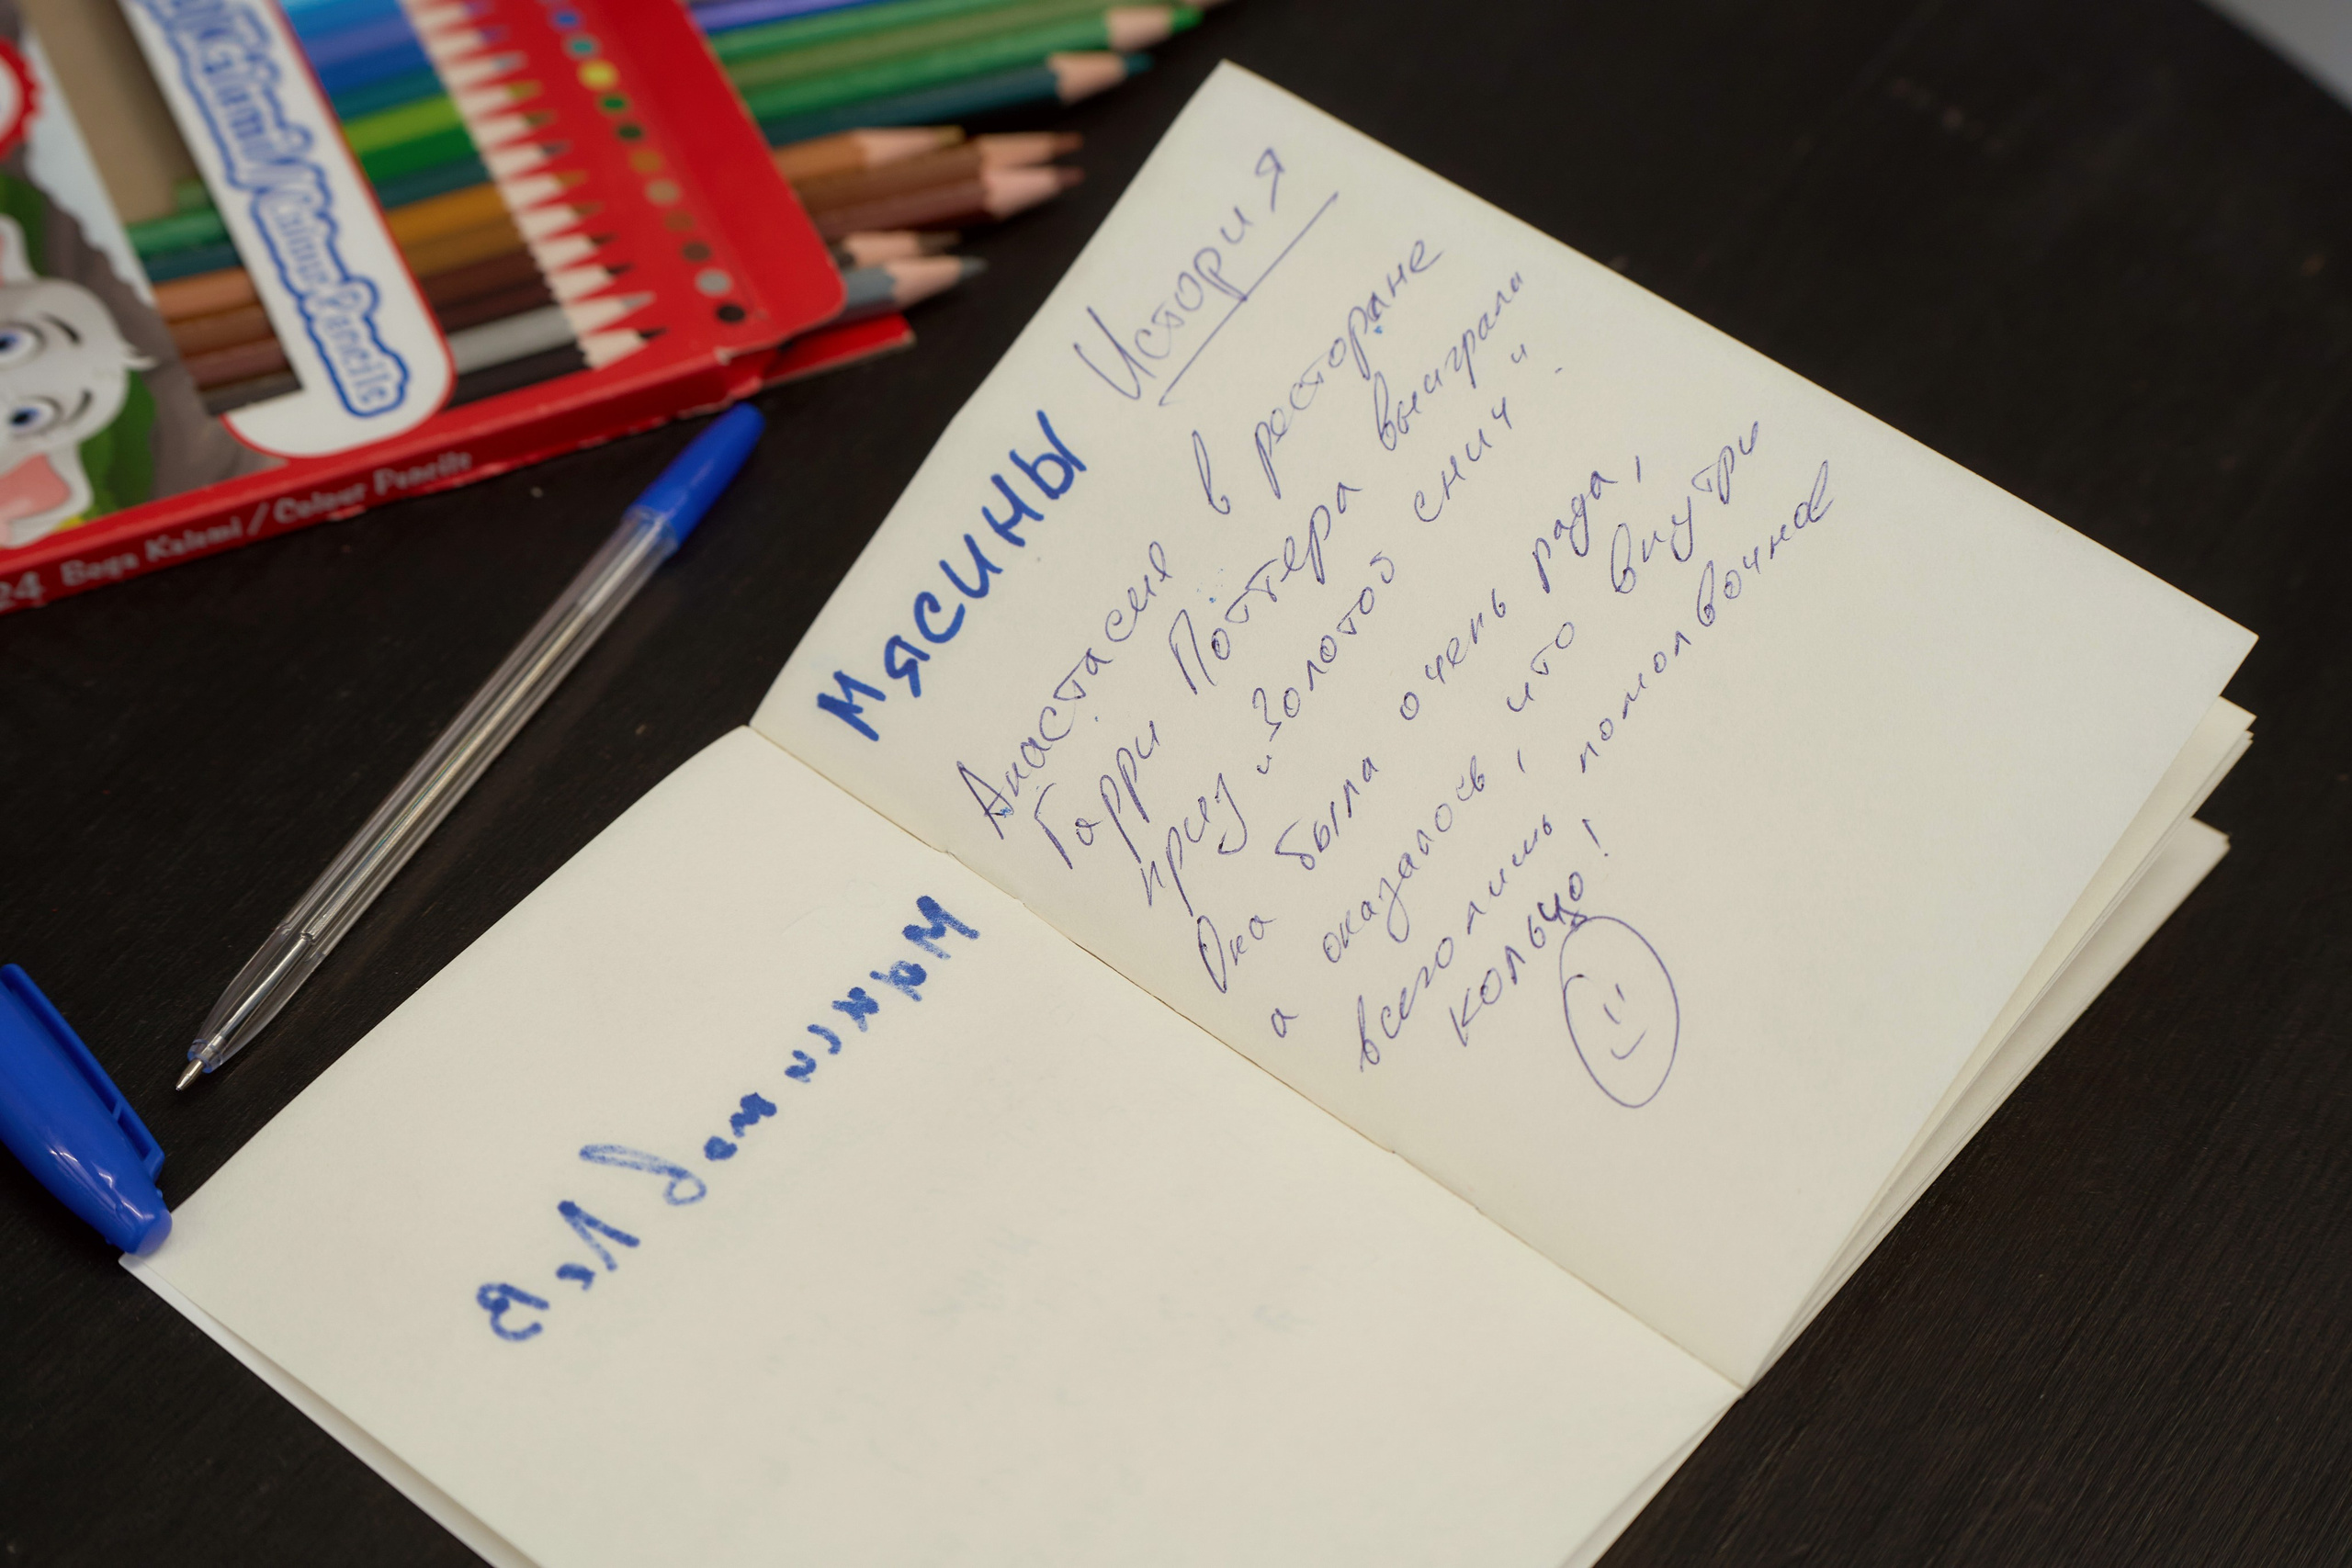 Colour Pencils
24 Boya Kalemi / Colour Pencils
История
Мясины
Анастасия в ресторане
Гарри Поттера выиграла
приз "Золотой снич".
Она была очень рада,
а оказалось, что внутри
всеголишь помолвочное
кольцо!